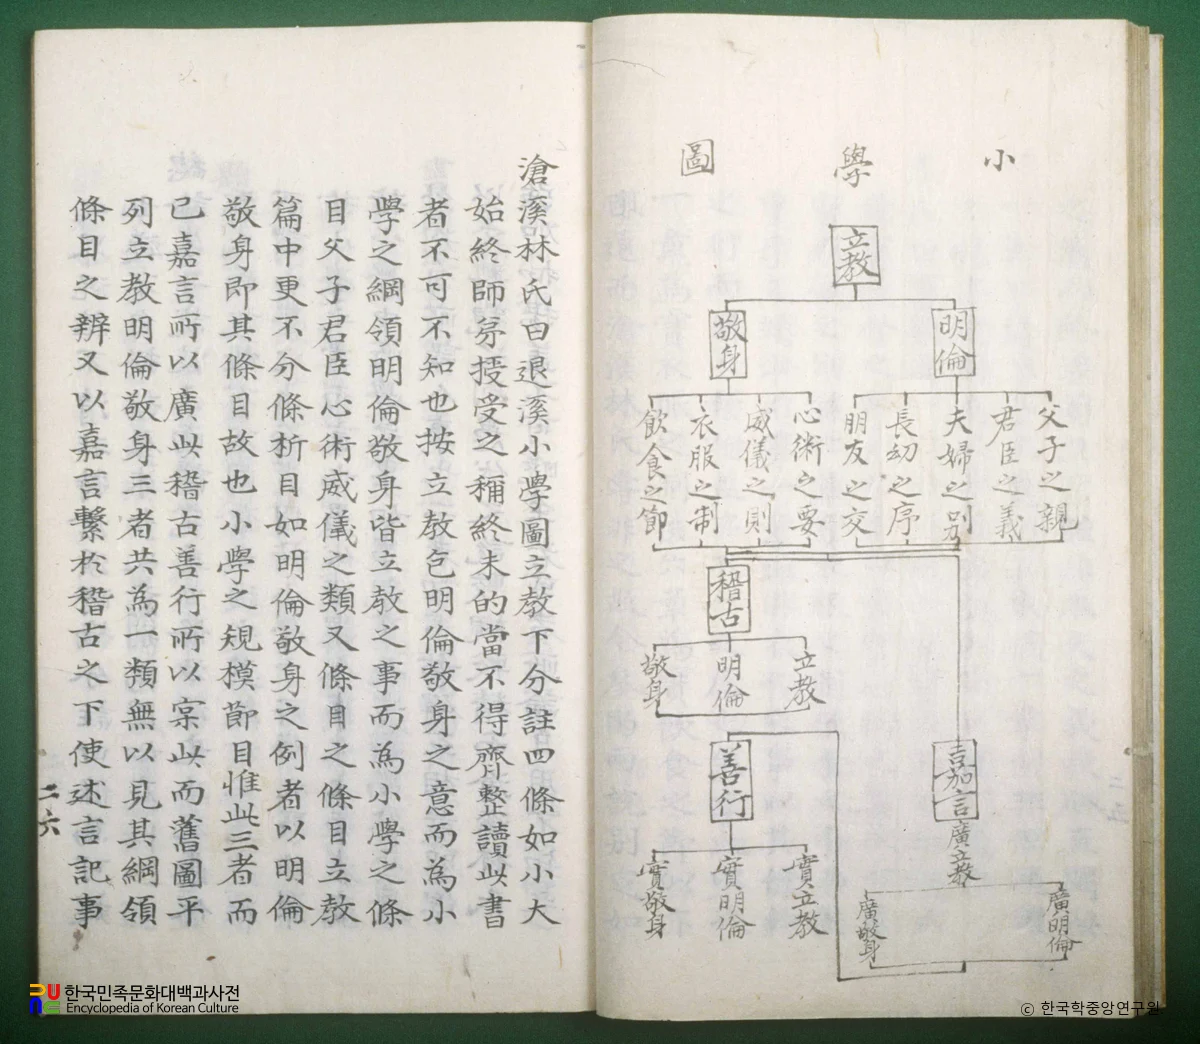 小學圖
立教
明倫
敬身
父子之親
君臣之義
夫婦之別
長幼之序
朋友之交
心術之要
威儀之則
衣服之制
飮食之節
稽古
立教
明倫
敬身
嘉言
廣立教
廣明倫
廣敬身
善行
實立教
實明倫
實敬身
滄溪林氏曰退溪小學圖立教下分註四條如小大
始終師弟授受之稱終未的當不得齊整讀此書
者不可不知也按立教包明倫敬身之意而為小
學之綱領明倫敬身皆立教之事而為小學之條
目父子君臣心術威儀之類又條目之條目立教
篇中更不分條析目如明倫敬身之例者以明倫
敬身即其條目故也小學之規模節目惟此三者而
已嘉言所以廣此稽古善行所以实此而舊圖平
列立教明倫敬身三者共為一類無以見其綱領
條目之辨又以嘉言繫於稽古之下使述言記事
二六
한국민족문화대백과사전
Encyclopedia of Korean Culture
© 한국학중앙연구원